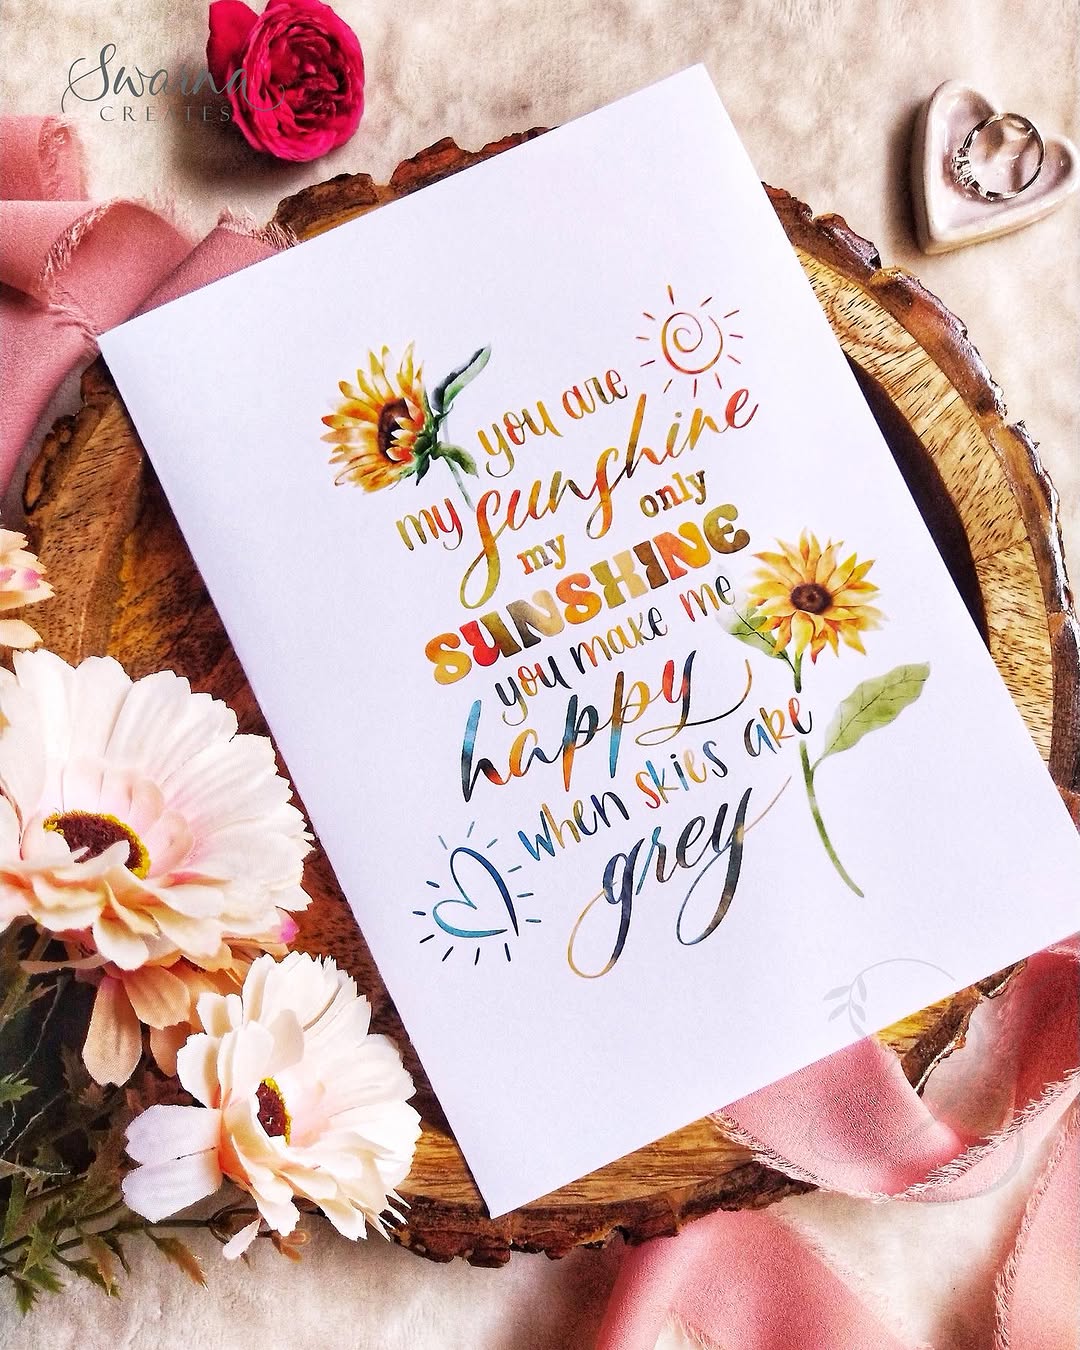 Swarna
CREATES
you are
my sunshine
my only
SUNSHINE
you make me
happy
when skies are
grey